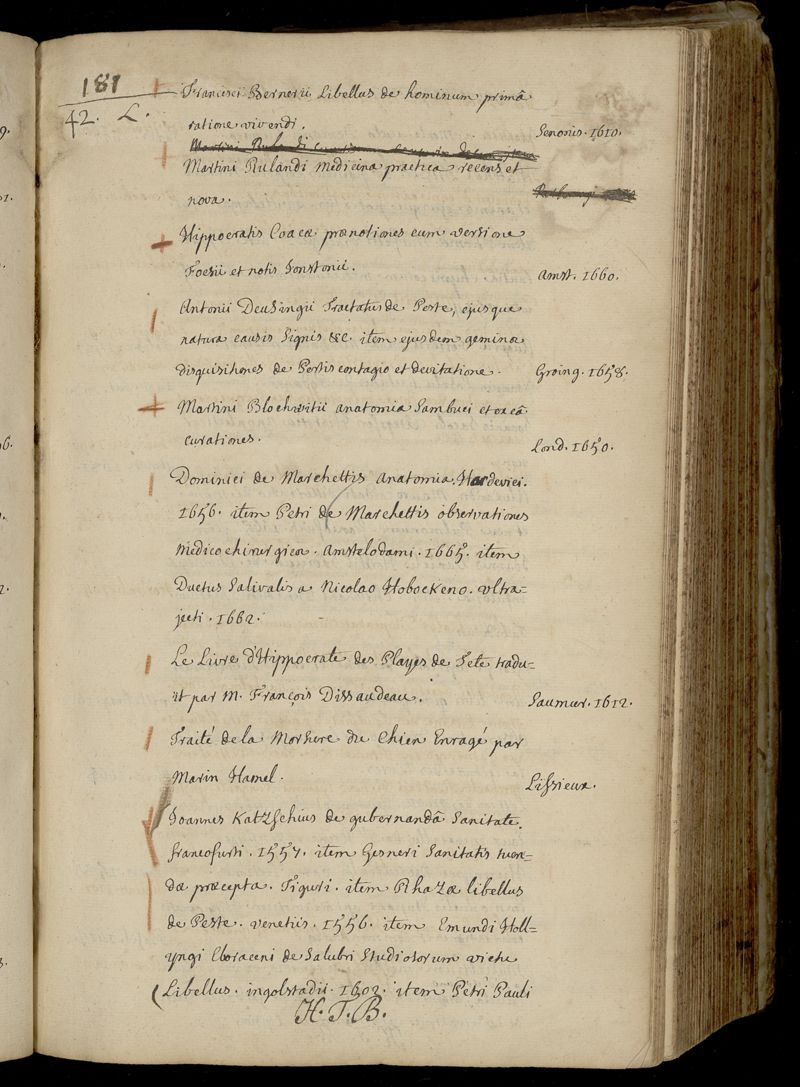 181
42. L.
Francisci Bernerii Libellus de hominum primâ
ratione vivendi. Senonis. 1610.
Martini Rulandi
Martini Rulandi medicina practica recens et
nova.
Hippocratis Coacæ prænotiones cum versione
Foesii et notis Jonstonii. Amst. 1660.
Antonii Deusingii Tractatus de Peste, ejusque
natura causis signis &c. item ejusdem gemina
disquisitiones de Pestis contagio et devitatione. Groing. 1658.
Martini Blochwitii anatomia Sambuci et ex eâ
curationes. Lond. 1650.
Dominici de Marchettis anatomia. Hardevici.
1656. item Petri de Marchettis observationes
medicochirurgicæ. Amstelodami. 1665. item
Ductus Salivalis a Nicolao Hobockeno. Ultra=
jecti. 1662.
Le Livre d'Hippocrate des Playes de Tete tradu=
it par M. François Dissaudeau. Saumur. 1612.
Traité de la Morsure du Chien Enragé par
Marin Hamel. Lissieux.
Joannes Katzschius de gubernandâ Sanitate.
francofurti. 1557. item Gesneri Sanitatis tuen=
dæ præcepta. Tiguri. item Rhazæ libellus
de Peste. venetiis. 1556. item Emundi Holl=
yngi Eboraceni de Salubri Studiosorum victu
Libellus. ingolstadii. 1602. item Petri Pauli
H. T. B.